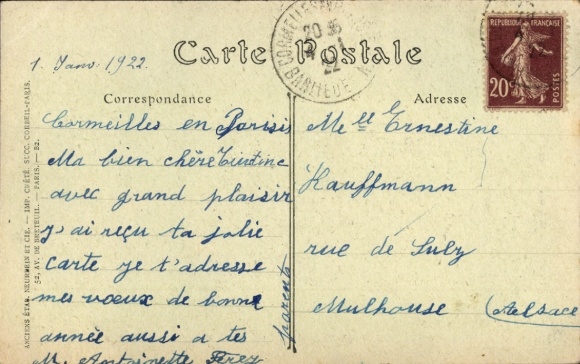 Carte Postale
CORMEILLES
20 35
22
BANLIEUE
REPUBLIQUE FRANÇAISE
20c
POSTES
1. Janv. 1922.
Correspondance
Cormeilles en Parisis
Ma bien chère
avec grand plaisir
j'ai reçu ta jolie
carte je t'adresse
mes vœux de bonne
année aussi a tes
parents
M. Antoinette
Adresse
Melle Ernestine
Kauffmann
rue de Sulzy
Mulhouse (Aelsace
ANCIENS ÉTAB. NEURDEIN ET CIE. — IMP. CRÉTÉ, SUCC. CORBEIL-PARIS.
52, AV. DE BRETEUIL. — PARIS. — 82.